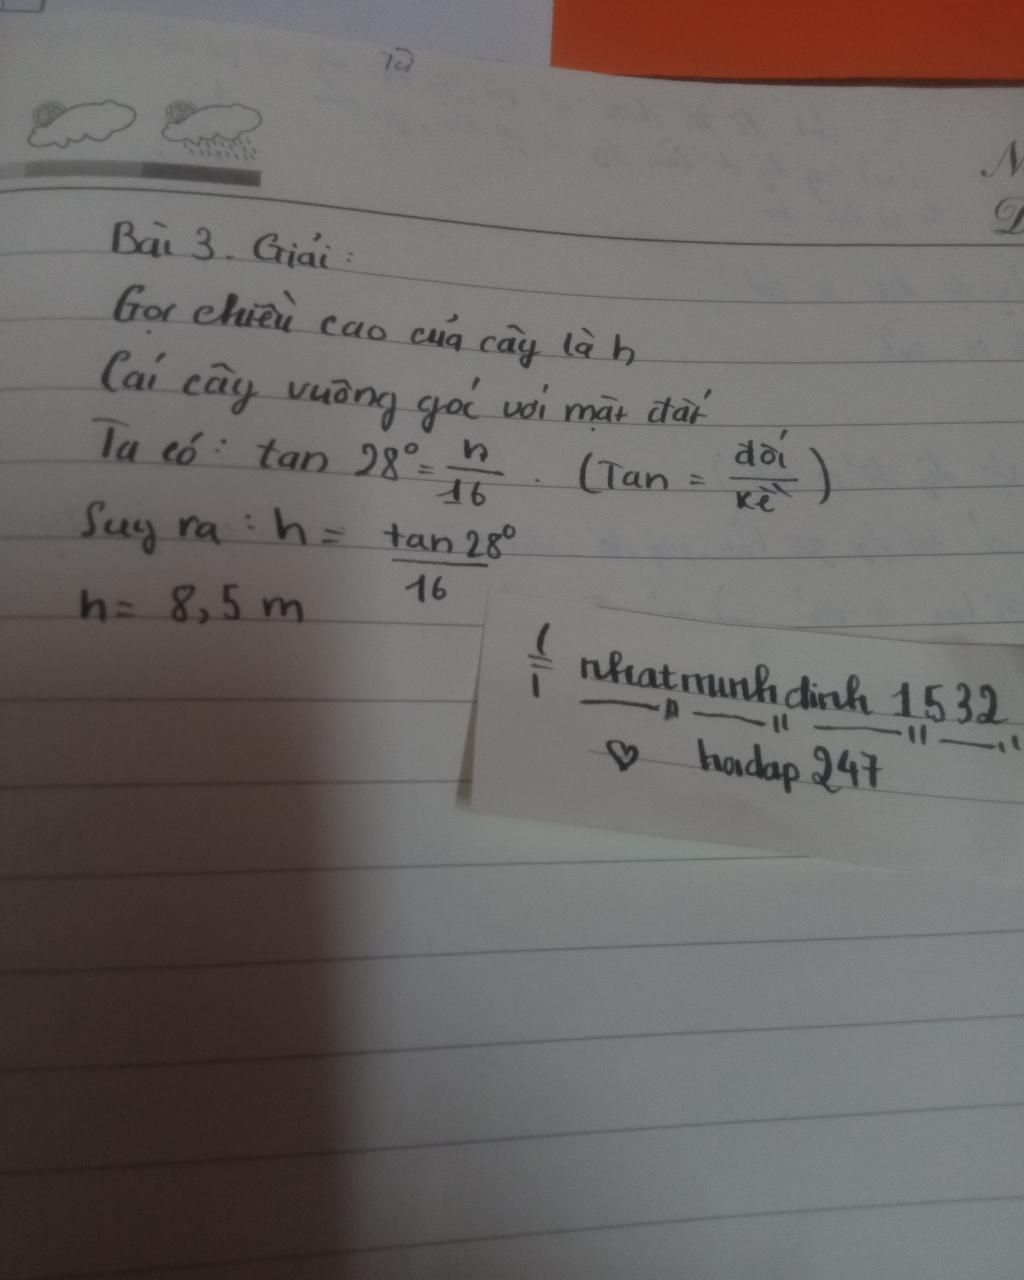 Từ
Bài 3. Giải:
Gọi chiều cao của cây là h
Cái cây vuông góc với mặt đất
Ta có: tan 28° = h/16. (Tan = đối/kề)
Suy ra: h = tan 28°/16
h = 8,5 m
nhatminhdinh 1532
♡ hoidap 247